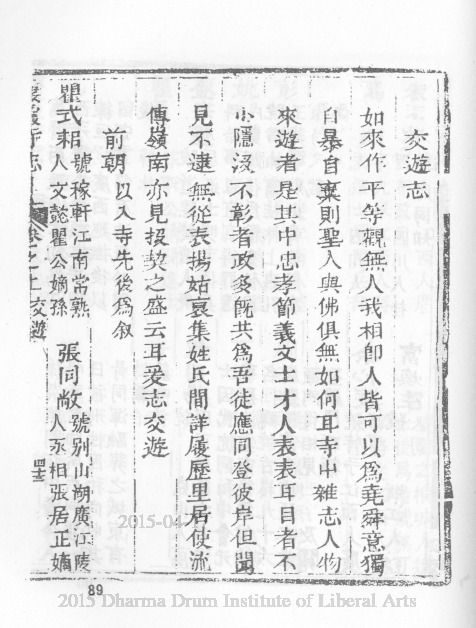 交遊志
如來作平等觀無人我相卽人皆可以爲堯舜意獨
自暴自棄則聖人與佛俱無如何耳寺中雜志人物
來遊者是其中忠孝節義文士才人表表耳目者不
少隱沒不彰者政多旣共爲吾徒應同登彼岸但聞
見不逮無從表揚姑裒集姓氏間詳履歷里居使流
傳嶺南亦見投契之盛云耳爰志交遊
前朝以入寺先後爲叙
瞿式耜號稼軒江南常熟人文懿瞿公嫡孫 張同敞號别山湖廣江陵人丞相張居正嫡
志 卷之上交遊
89
2015-04
2015 Dharma Drum Institute of Liberal Arts